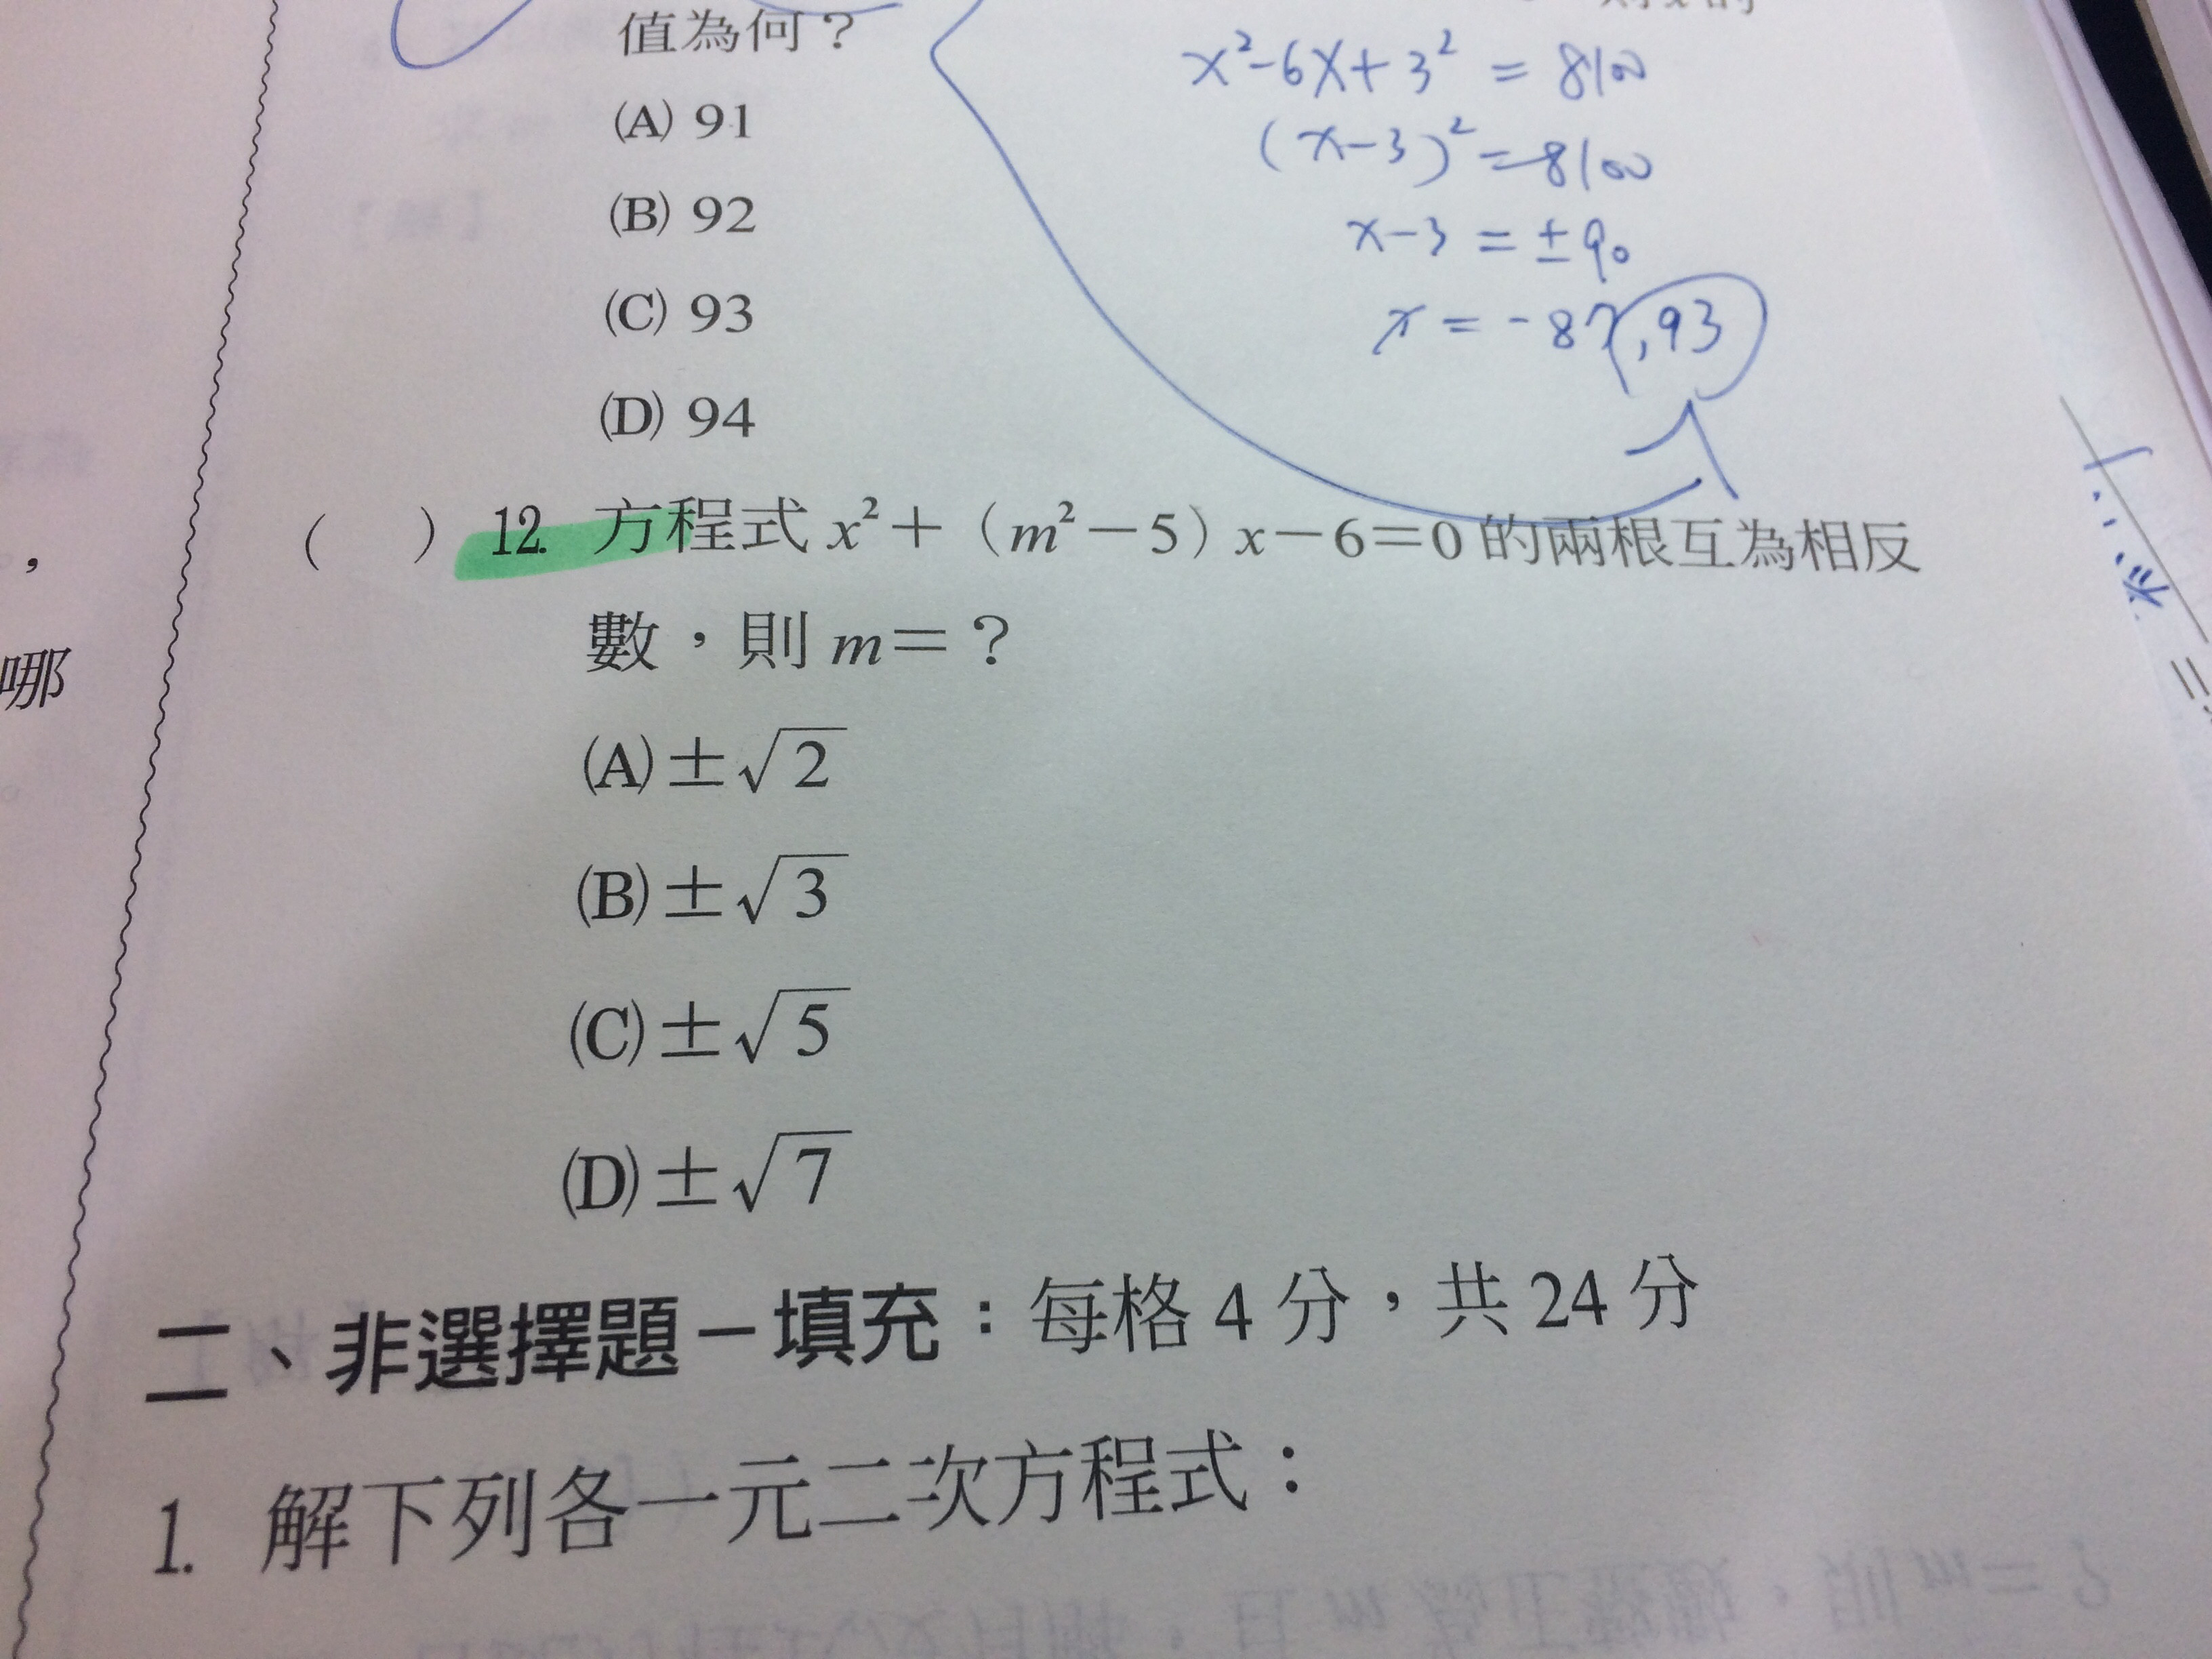 值為何？
(A) 91
(B) 92
(C) 93
(D) 94
x²-6x+3² = 8100
(x-3)² = 8100
x-3 = ±90
x = -87, 93
( ) 12. 方程式 x²+（m²－5）x－6＝0 的兩根互為相反
數，則 m＝？
(A) ±√2
(B) ±√3
(C) ±√5
(D) ±√7
二、非選擇題－填充：每格 4 分，共 24 分
1. 解下列各一元二次方程式：
，
哪